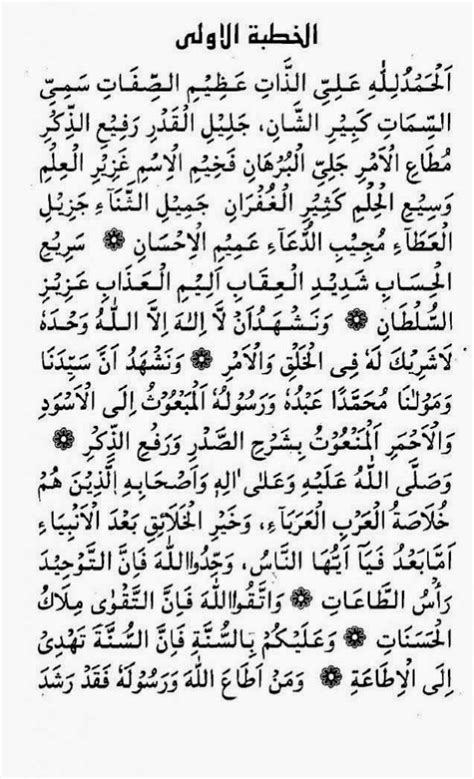 الخطبة الاولى
اَلْحَمْدُلِلّٰهِ عَلِيِّ الذَّاتِ عَظِيْمِ الصِّفَاتِ سَمِيِّ
السِّمَاتِ كَبِيْرِ الشَّانِ، جَلِيْلِ الْقَدْرِ رَفِيْعِ الذِّكْرِ
مُطَاعِ الْاَمْرِ جَلِيِّ الْبُرْهَانِ فَخِيْمِ الْاِسْمِ غَزِيْرِ الْعِلْمِ
وَسِيْعِ الْحِلْمِ كَثِيْرِ الْغُفْرَانِ جَمِيْلِ الثَّنَآءِ جَزِيْلِ
الْعَطَآءِ مُجِيْبِ الدُّعَآءِ عَمِيْمِ الْاِحْسَانِ ۞ سَرِيْعِ
الْحِسَابِ شَدِيْدِ الْعِقَابِ اَلِيْمِ الْعَذَابِ عَزِيْزِ
السُّلْطَانِ ۞ وَنَشْهَدُاَنْ لَّا اِلٰهَ اِلَّا اللّٰهُ وَحْدَهٗ
لَاشَرِيْكَ لَهٗ فِي الْخَلْقِ وَالْاَمْرِ ۞ وَنَشْهَدُ اَنَّ سَيِّدَنَا
وَمَوْلٰنَا مُحَمَّدًا عَبْدُهٗ وَرَسُوْلُهُ الْمَبْعُوْثُ اِلَى الْاَسْوَدِ
وَالْاَحْمَرِ الْمَنْعُوْتُ بِشَرْحِ الصَّدْرِ وَرَفْعِ الذِّكْرِ ۞
وَصَلَّى اللّٰهُ عَلَيْهِ وَعَلٰى اٰلِهٖ وَاَصْحَابِهِ الَّذِيْنَ هُمْ
خُلَاصَةُ الْعَرَبِ الْعَرَبَآءِ، وَخَيْرِ الْخَلَائِقِ بَعْدَ الْاَنْبِيَاءِ
اَمَّابَعْدُ فَيَآ اَيُّهَا النَّاسُ، وَحِّدُوااللّٰهَ فَاِنَّ التَّوْحِيْدَ
رَاْسُ الطَّاعَاتِ ۞ وَاتَّقُوااللّٰهَ فَاِنَّ التَّقْوٰى مِلَاكُ
الْحَسَنَاتِ ۞ وَعَلَيْكُمْ بِالسُّنَّةِ فَاِنَّ السُّنَّةَ تَهْدِيْ
اِلَى الْاِطَاعَةِ ۞ وَمَنْ اَطَاعَ اللّٰهَ وَرَسُوْلَهٗ فَقَدْ رَشَدَ